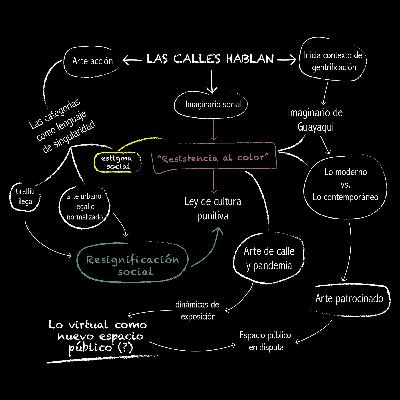 LAS CALLES HABLAN
Arte acción
Inicia contexto de
gentrificación
Imaginario social
Las categorías
como lenguaje
de singularidad
maginario de
Guayaqui
estigma
social
"Resistencia al color"
Lo moderno
vs.
Lo contemporáneo
Grafiti
ilega
arte urbano
legal o
normalizado
Ley de cultura
punitiva
Resignificación
social
Arte de calle
y pandemia
Arte patrocinado
dinámicas de
exposición
Lo virtual como
nuevo espacio
público (?)
Espacio público
en disputa